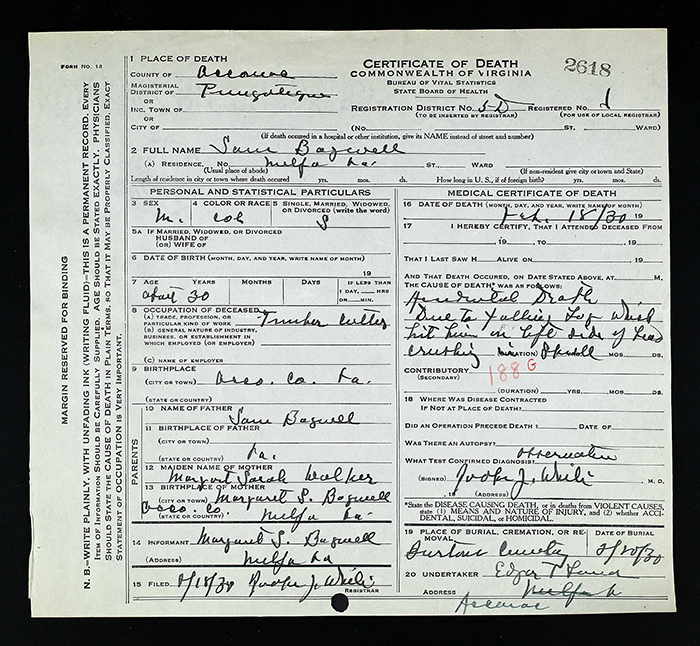 FORM NO. 12
MARGIN RESERVED FOR BINDING
N. B.—WRITE PLAINLY, WITH UNFADING INK (WRITING FLUID)—THIS IS A PERMANENT RECORD. EVERY
ITEM OF INFORMATION SHOULD BE CAREFULLY SUPPLIED. AGE SHOULD BE STATED EXACTLY. PHYSICIANS
SHOULD STATE THE CAUSE OF DEATH IN PLAIN TERMS, SO THAT IT MAY BE PROPERLY CLASSIFIED. EXACT
STATEMENT OF OCCUPATION IS VERY IMPORTANT.
1 PLACE OF DEATH
COUNTY OF Accomac
MAGISTERIAL
DISTRICT OF
OR
INC. TOWN OF
OR
CITY OF
CERTIFICATE OF DEATH
COMMONWEALTH OF VIRGINIA
BUREAU OF VITAL STATISTICS
STATE BOARD OF HEALTH
2618
REGISTRATION DISTRICT NO. 5-D REGISTERED NO.
(TO BE INSERTED BY REGISTRAR) (FOR USE OF LOCAL REGISTRAR)
(NO. ST. WARD)
(If death occured in a hospital or other institution, give its NAME instead of street and number)
2 FULL NAME Sam Bagwell
(A) RESIDENCE. No. Melfa Va. ST. WARD
(Usual place of abode) (If non-resident give city or town and State)
Length of residence in city or town where death occured yrs. mos. ds. How long in U. S., if of foreign birth? yrs. mos. ds.
PERSONAL AND STATISTICAL PARTICULARS
3 SEX
M.
4 COLOR OR RACE
Col
5 SINGLE, MARRIED, WIDOWED, OR DIVORCED (write the word)
S
5A IF MARRIED, WIDOWED, OR DIVORCED
HUSBAND OF
(OR) WIFE OF
6 DATE OF BIRTH (MONTH, DAY, AND YEAR, WRITE NAME OF MONTH)
19
7 AGE YEARS MONTHS DAYS IF LESS THAN
1 DAY, HRS
OR MIN.
about 30
8 OCCUPATION OF DECEASED
(A) TRADE, PROFESSION, OR
PARTICULAR KIND OF WORK Timber Cutter
(B) GENERAL NATURE OF INDUSTRY,
BUSINESS, OR ESTABLISHMENT IN
WHICH EMPLOYED (OR EMPLOYER)
(C) NAME OF EMPLOYER
9 BIRTHPLACE
(CITY OR TOWN) Acco. Co. Va.
(STATE OR COUNTRY)
PARENTS
10 NAME OF FATHER
Sam Bagwell
11 BIRTHPLACE OF FATHER
(CITY OR TOWN)
(STATE OR COUNTRY) Va.
12 MAIDEN NAME OF MOTHER
Margaret Sarah Walker
13 BIRTHPLACE OF MOTHER
(CITY OR TOWN) Margaret S. Bagwell
Acco. Co.
(STATE OR COUNTRY) Melfa Va.
14 INFORMANT Margaret S. Bagwell
Melfa Va
15 FILED 2/18/30
REGISTRAR
MEDICAL CERTIFICATE OF DEATH
16 DATE OF DEATH (MONTH, DAY, AND YEAR, WRITE NAME OF MONTH)
Feb. 18/30 19
17 I HEREBY CERTIFY, THAT I ATTENDED DECEASED FROM
19 TO 19
THAT I LAST SAW H ALIVE ON 19
AND THAT DEATH OCCURED, ON DATE STATED ABOVE, AT M.
THE CAUSE OF DEATH* WAS AS FOLLOWS:
Accidental Death
Due to Falling Log Which
hit him in left side of head
crushing (DURATION) Skull MOS. DS.
CONTRIBUTORY
(SECONDARY)
188 G
(DURATION) YRS. MOS. DS.
18 WHERE WAS DISEASE CONTRACTED
IF NOT AT PLACE OF DEATH?
DID AN OPERATION PRECEDE DEATH? DATE OF
WAS THERE AN AUTOPSY?
WHAT TEST CONFIRMED DIAGNOSIS? Observation
(SIGNED) M. D.
, 19 (ADDRESS)
*State the DISEASE CAUSING DEATH, or in deaths from VIOLENT CAUSES, state (1) MEANS AND NATURE OF INJURY, and (2) whether ACCIDENTAL, SUICIDAL, or HOMICIDAL.
19 PLACE OF BURIAL, CREMATION, OR REMOVAL DATE OF BURIAL
Cemetery 2/20/30
20 UNDERTAKER Edgar T.
ADDRESS Melfa
Accomac